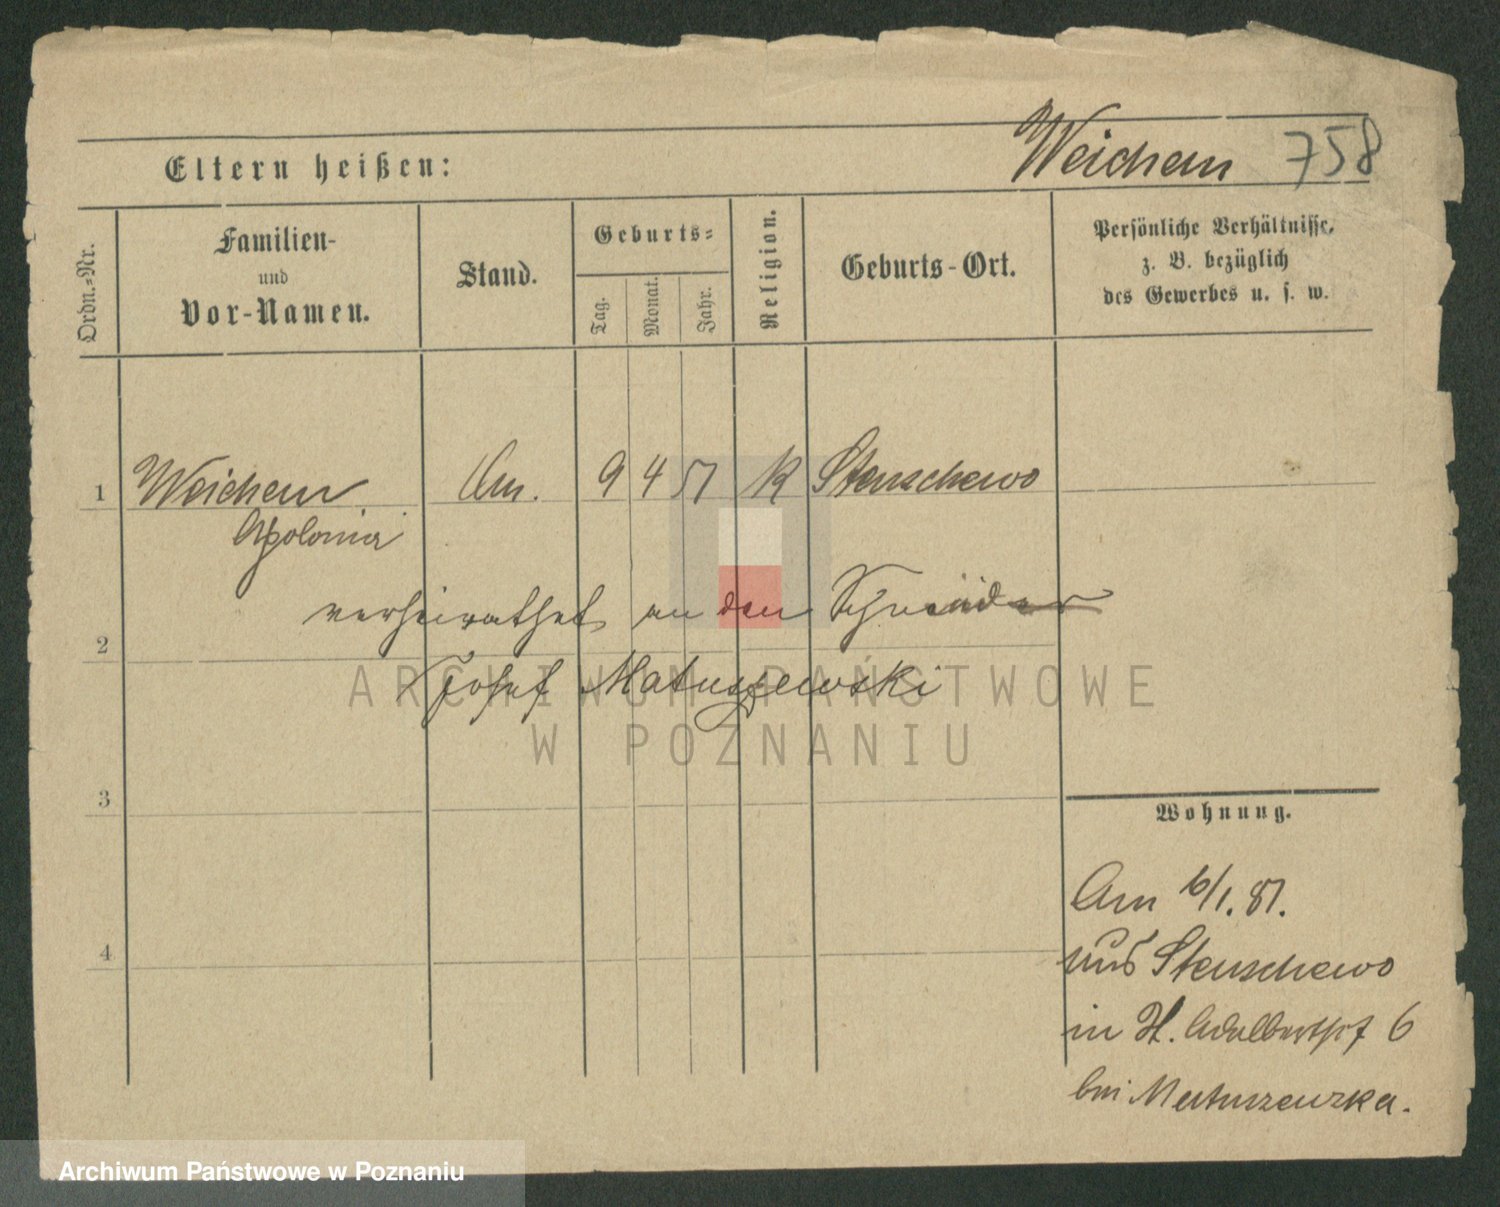 Weichem 758
Eltern heißen:
Ordn.=Nr.
Familien-
und
Vor-Namen.
Stand.
Geburts=
Tag.
Monat.
Jahr.
Religion.
Geburts-Ort.
Persönliche Verhältnisse,
z. B. bezüglich
des Gewerbes u. s. w.
1 Weichem 9 4 51 K Stenschewo
Apolonia
verheirathet an den Schneider
2
Josef Matuszewski
ARCHIWUM PAŃSTWOWE
W POZNANIU
3
Wohnung.
Am 6/1. 81.
4
aus Stenschewo
in St. Adalbertstr 6
bei Matuszewska.
Archiwum Państwowe w Poznaniu